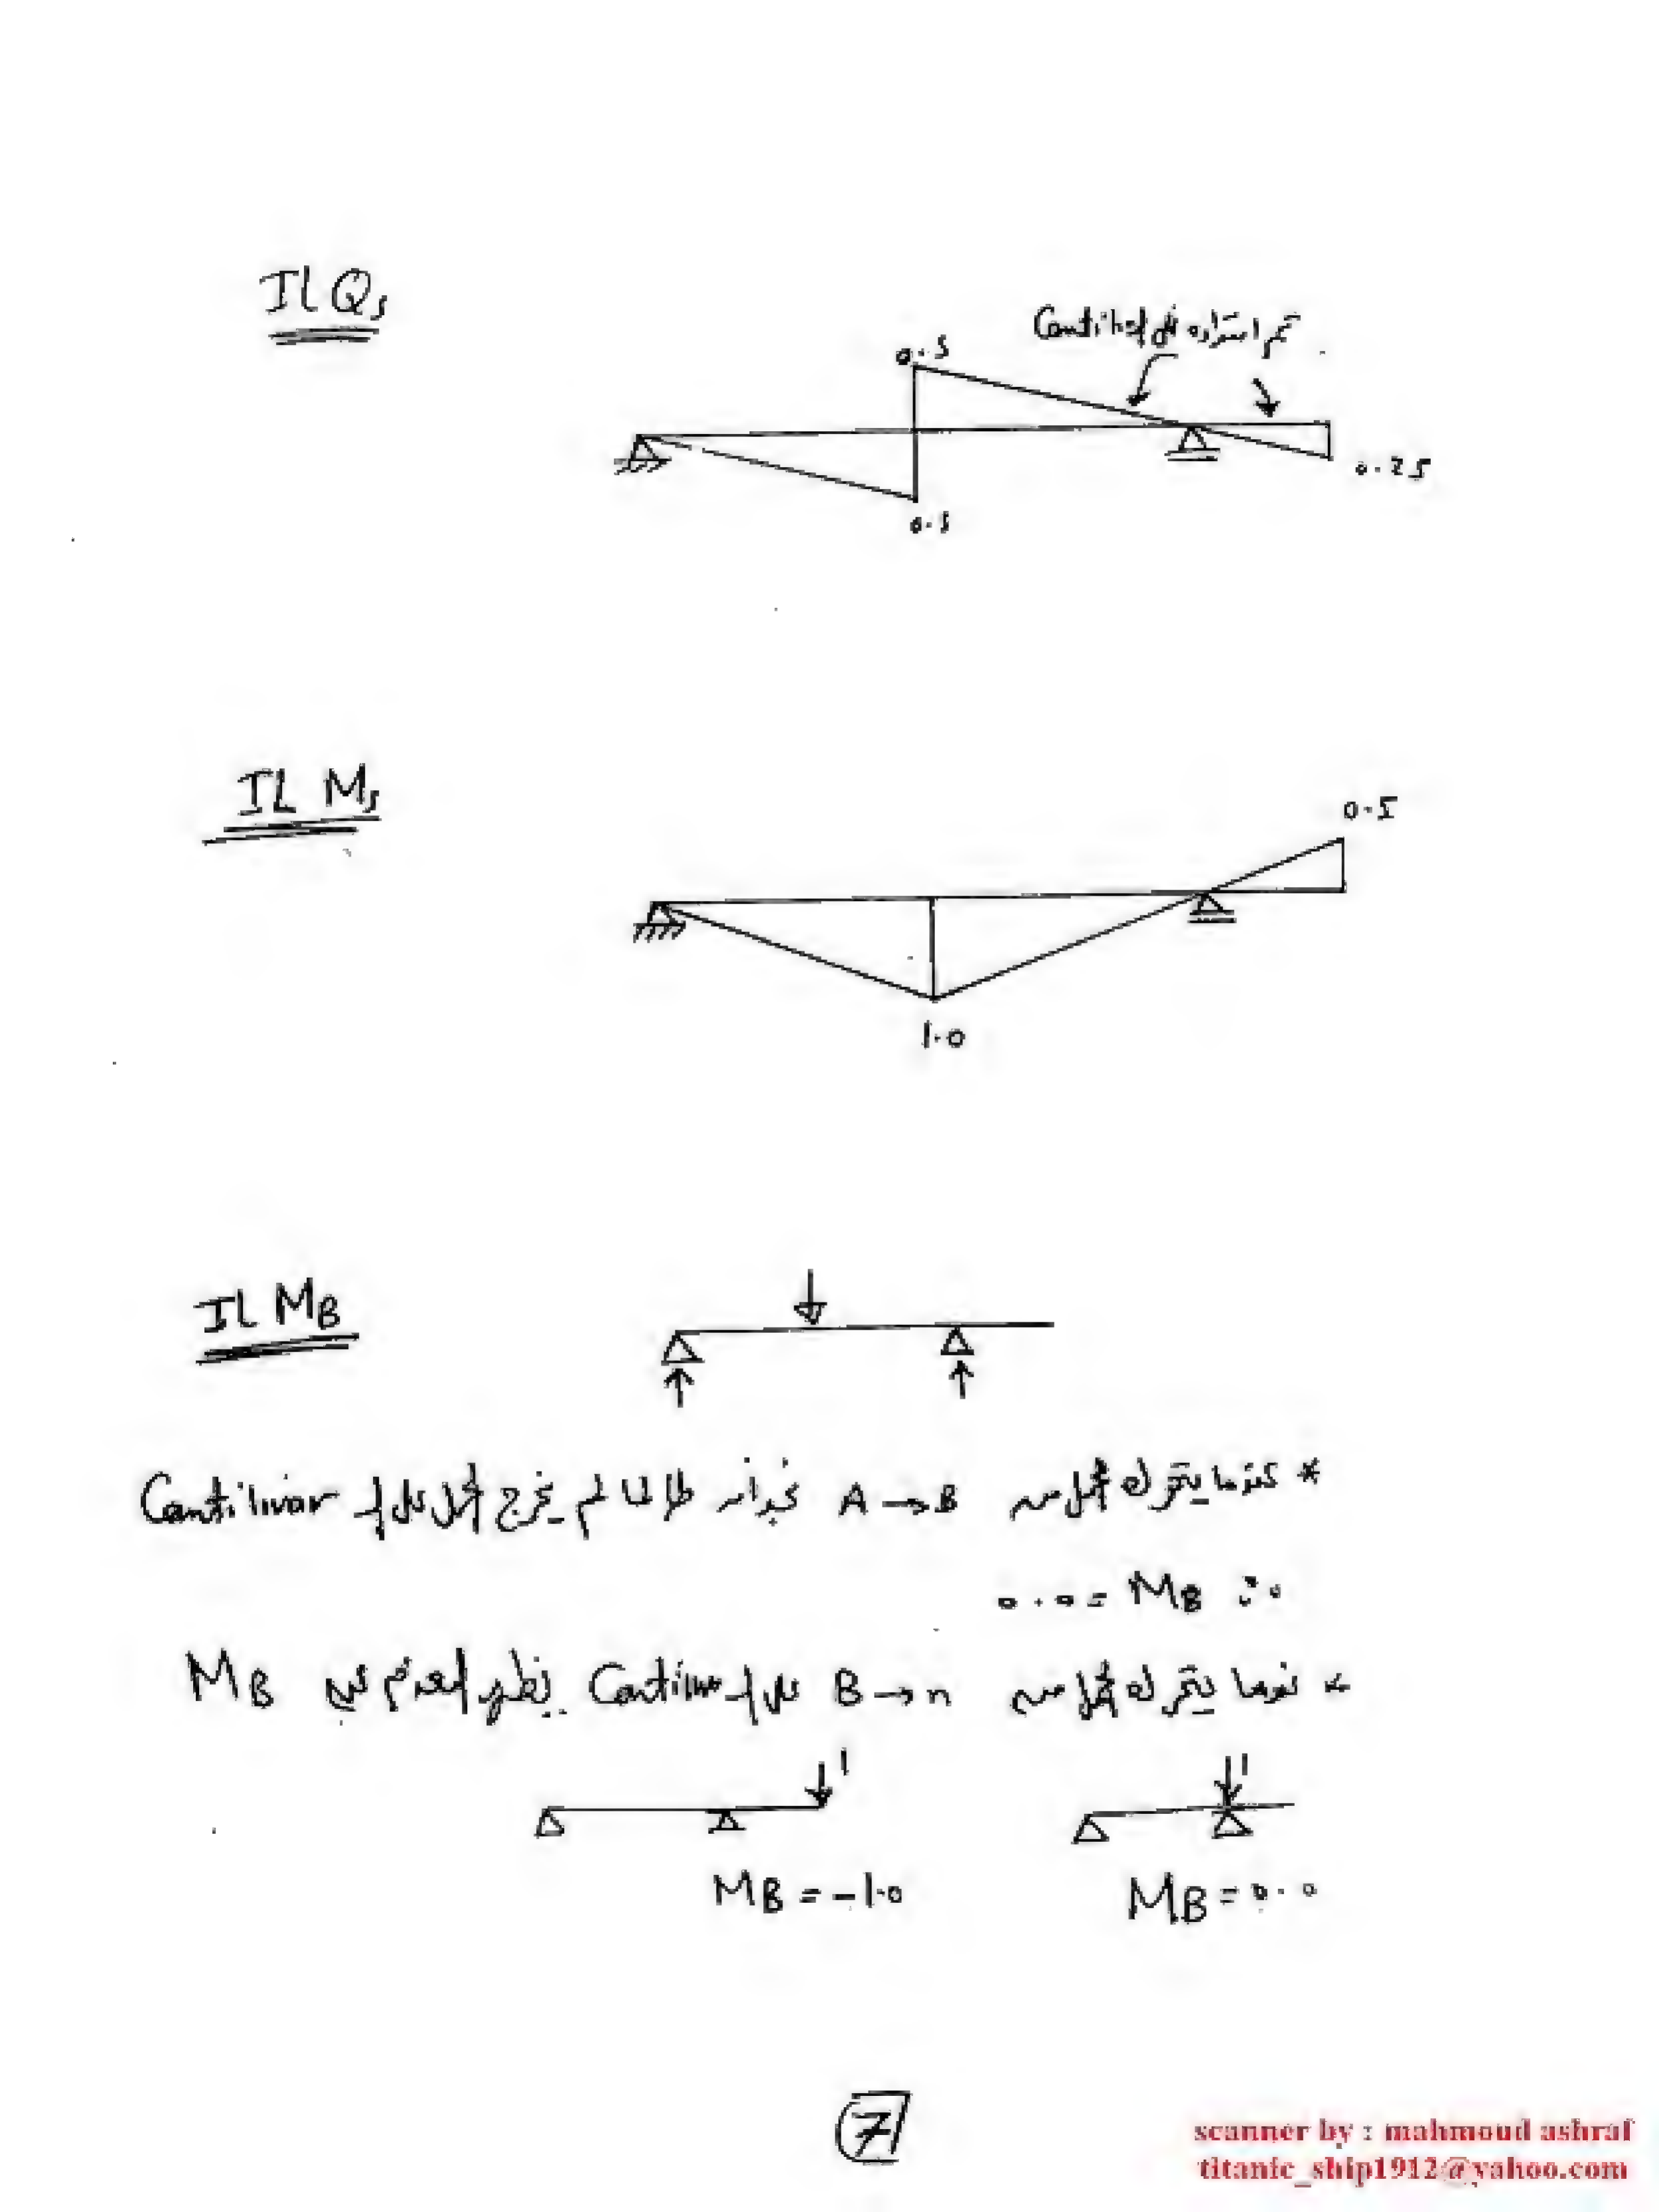 IL Qs
تم استقراره على ال Cantil
0.5
0.5
0.25
IL Ms
0.5
1.0
IL MB
* عندما يتحرك الحمل من A → B نجد أنه طالما لم يخرج الحمل على ال Cantilivar
∴ MB = 0.0
* عندما يتحرك الحمل من B → n على ال Cantiliver يظهر العزم عند MB
1
1
MB = -1.0
MB = 0.0
7
scanner by : mahmoud ashraf
titanic_ship1912@yahoo.com